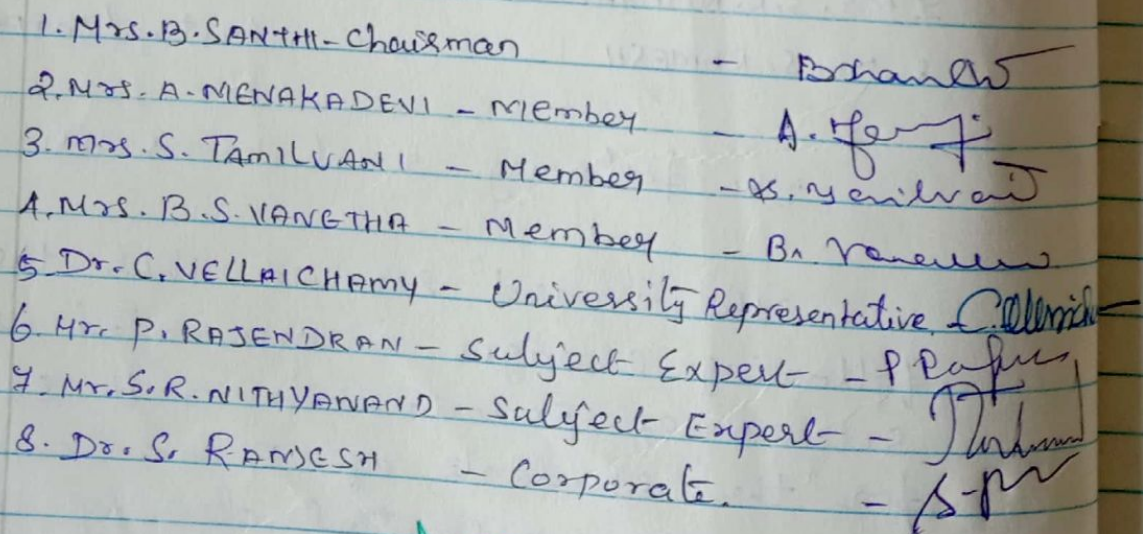 1. Mrs. B. SANTHI - Chairman -
2. Mrs. A. MENAKADEVI - Member - A.
3. Mrs. S. TAMILVANI - Member - S.
4. Mrs. B. S. VANETHA - Member - B.
5 Dr. C. VELLAICHAMY - University Representative
6. Mr. P. RAJENDRAN - Subject Expert - P
7. Mr. S. R. NITHYANAND - Subject Expert -
8. Dr. S. RANJESH - Corporate. -